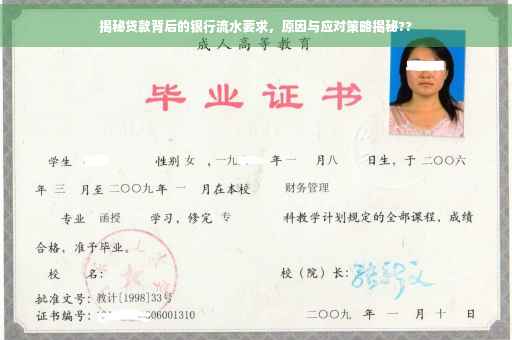 揭秘贷款背后的银行流水要求，原因与应对策略揭秘??
成人高等教育
毕业证书
学生 性别 女 ，一九 年 一 月 八 日生，于 二〇〇六
年 三 月至 二〇〇九 年 一 月在本校 财务管理
专业 函授 学习，修完 专 科教学计划规定的全部课程，成绩
合格，准予毕业。
校 名： 校（院）长：
批准文号：教计[1998]33号
证书编号： 06001310 二〇〇九 年 一 月 十 日